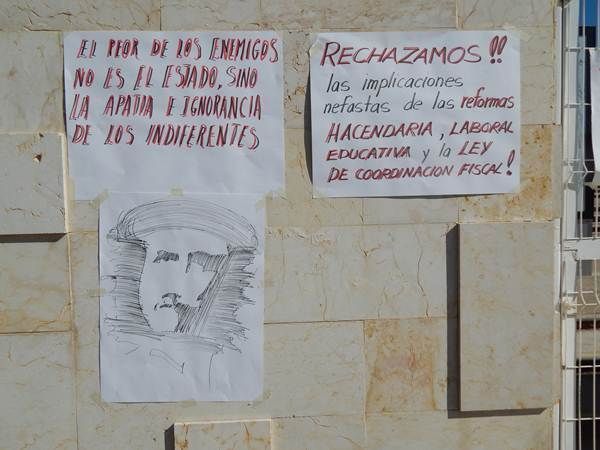 EL PEOR DE LOS ENEMIGOS
NO ES EL ESTADO, SINO
LA APATIA E IGNORANCIA
DE LOS INDIFERENTES
RECHAZAMOS!!
las implicaciones
nefastas de las reformas
HACENDARIA, LABORAL
EDUCATIVA y la LEY
DE COORDINACION FISCAL!